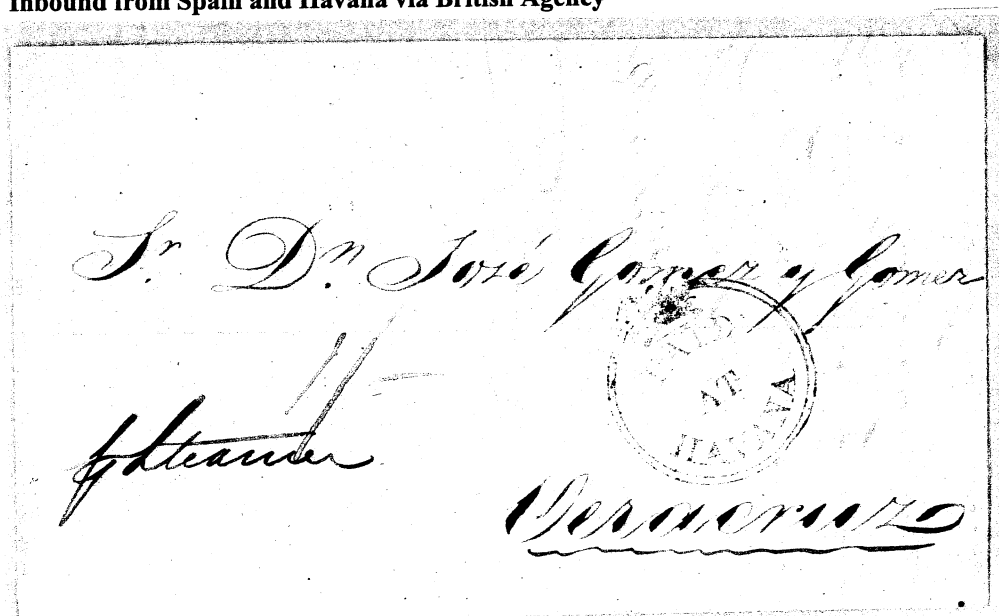 Inbound from Spain and Havana via British Agency
Sr. Dn. José Gomez y Gomez
PAID
AT
HAVANA
Steamer
Veracruz